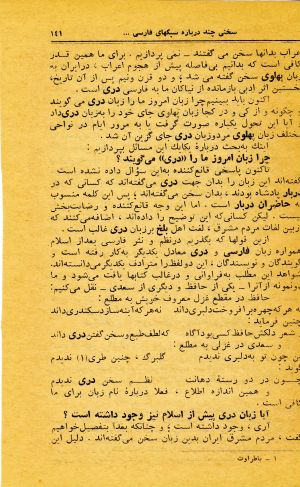 سخنی چند درباره سبکهای فارسی ... ۱۴۱
اعراب بدانها سخن می گفتند ـ نمی پردازیم . برای ما همین قدر
کافی است که بدانیم بی‌فاصله پیش از هجوم اعراب ، در ایران به
زبان پهلوی سخن گفته می شد؛ و دو قرن ونیم پس از آن تاریخ،
نخستین اثر ادبی بازمانده از نیاکان ما به فارسی دری است .
اکنون باید ببینیم چرا زبان امروز ما را زبان دری می گویند
و چگونه و از کی و در کجا زبان پهلوی جای خود را به زبان دری داد
آیا این تحول یکباره صورت گرفت یا به مرور ایام در نواحی
مختلف زبان پهلوی مرد و زبان دری جای گزین آن شد .
اینك به‌بحث دربارهٔ یکایك این مسائل بپردازیم :
چرا زبان امروز ما را «دری» می‌گویند ؟
تاکنون پاسخی قانع‌کننده به‌این سؤال داده نشده است
گفته‌اند این زبان را بدان جهت دری می‌گفته‌اند که کسانی که در
دربار پادشاه بودند، بدان سخن می‌گفته‌اند ؛ پس این کلمه منسوب
به حاضران دربار است . اما این وجه قانع‌کننده و رضایت‌بخش
نیست . لیکن کسانی‌که این توضیح را داده‌اند ، اضافه‌می‌کنند که
از بین لغات مردم مشرق ، لغت اهل بلخ بر زبان دری غالب است .
ازین قولها که بگذریم در نظم و نثر فارسی بعد از اسلام
همواره زبان فارسی و دری معادل یکدیگر به‌کار رفته است و
گویندگان و نویسندگان ، این دو لفظ را مترادف یکدیگر می‌دانسته‌اند.
شواهد این مطلب به‌فراوانی و در غالب کتابها یافت می‌شود و ما
دو نمونه از آنرا ـ یکی از حافظ و دیگری از سعدی ـ نقل می‌کنیم:
حافظ در مقطع غزل معروف خویش به مطلع :
نه هرکه چهره برافروخت دلبری داند نه هرکه آینه سازد سکندری داند
چنین فرماید :
ز شعر دلکش حافظ کسی بود آگاه که لطف طبع و سخن گفتن دری داند
و سعدی در غزلی به مطلع :
من چون تو به دلبری ندیدم گلبرگ ، چنین طری(۱) ندیدم
گوید :
چون در دو رستهٔ دهانت نظم سخن دری ندیدم
و همین اندازه اطلاع ، فعلا دربارهٔ نام زبان برای ما
کافی است .
آیا زبان دری پیش از اسلام نیز وجود داشته است ؟
آری ، وجود داشته است ؛ و چنانکه بعداً بتفصیل خواهیم
گفت ، مردم مشرق ایران بدین زبان سخن می‌گفته‌اند . دلیل این
۱ ـ باطراوت